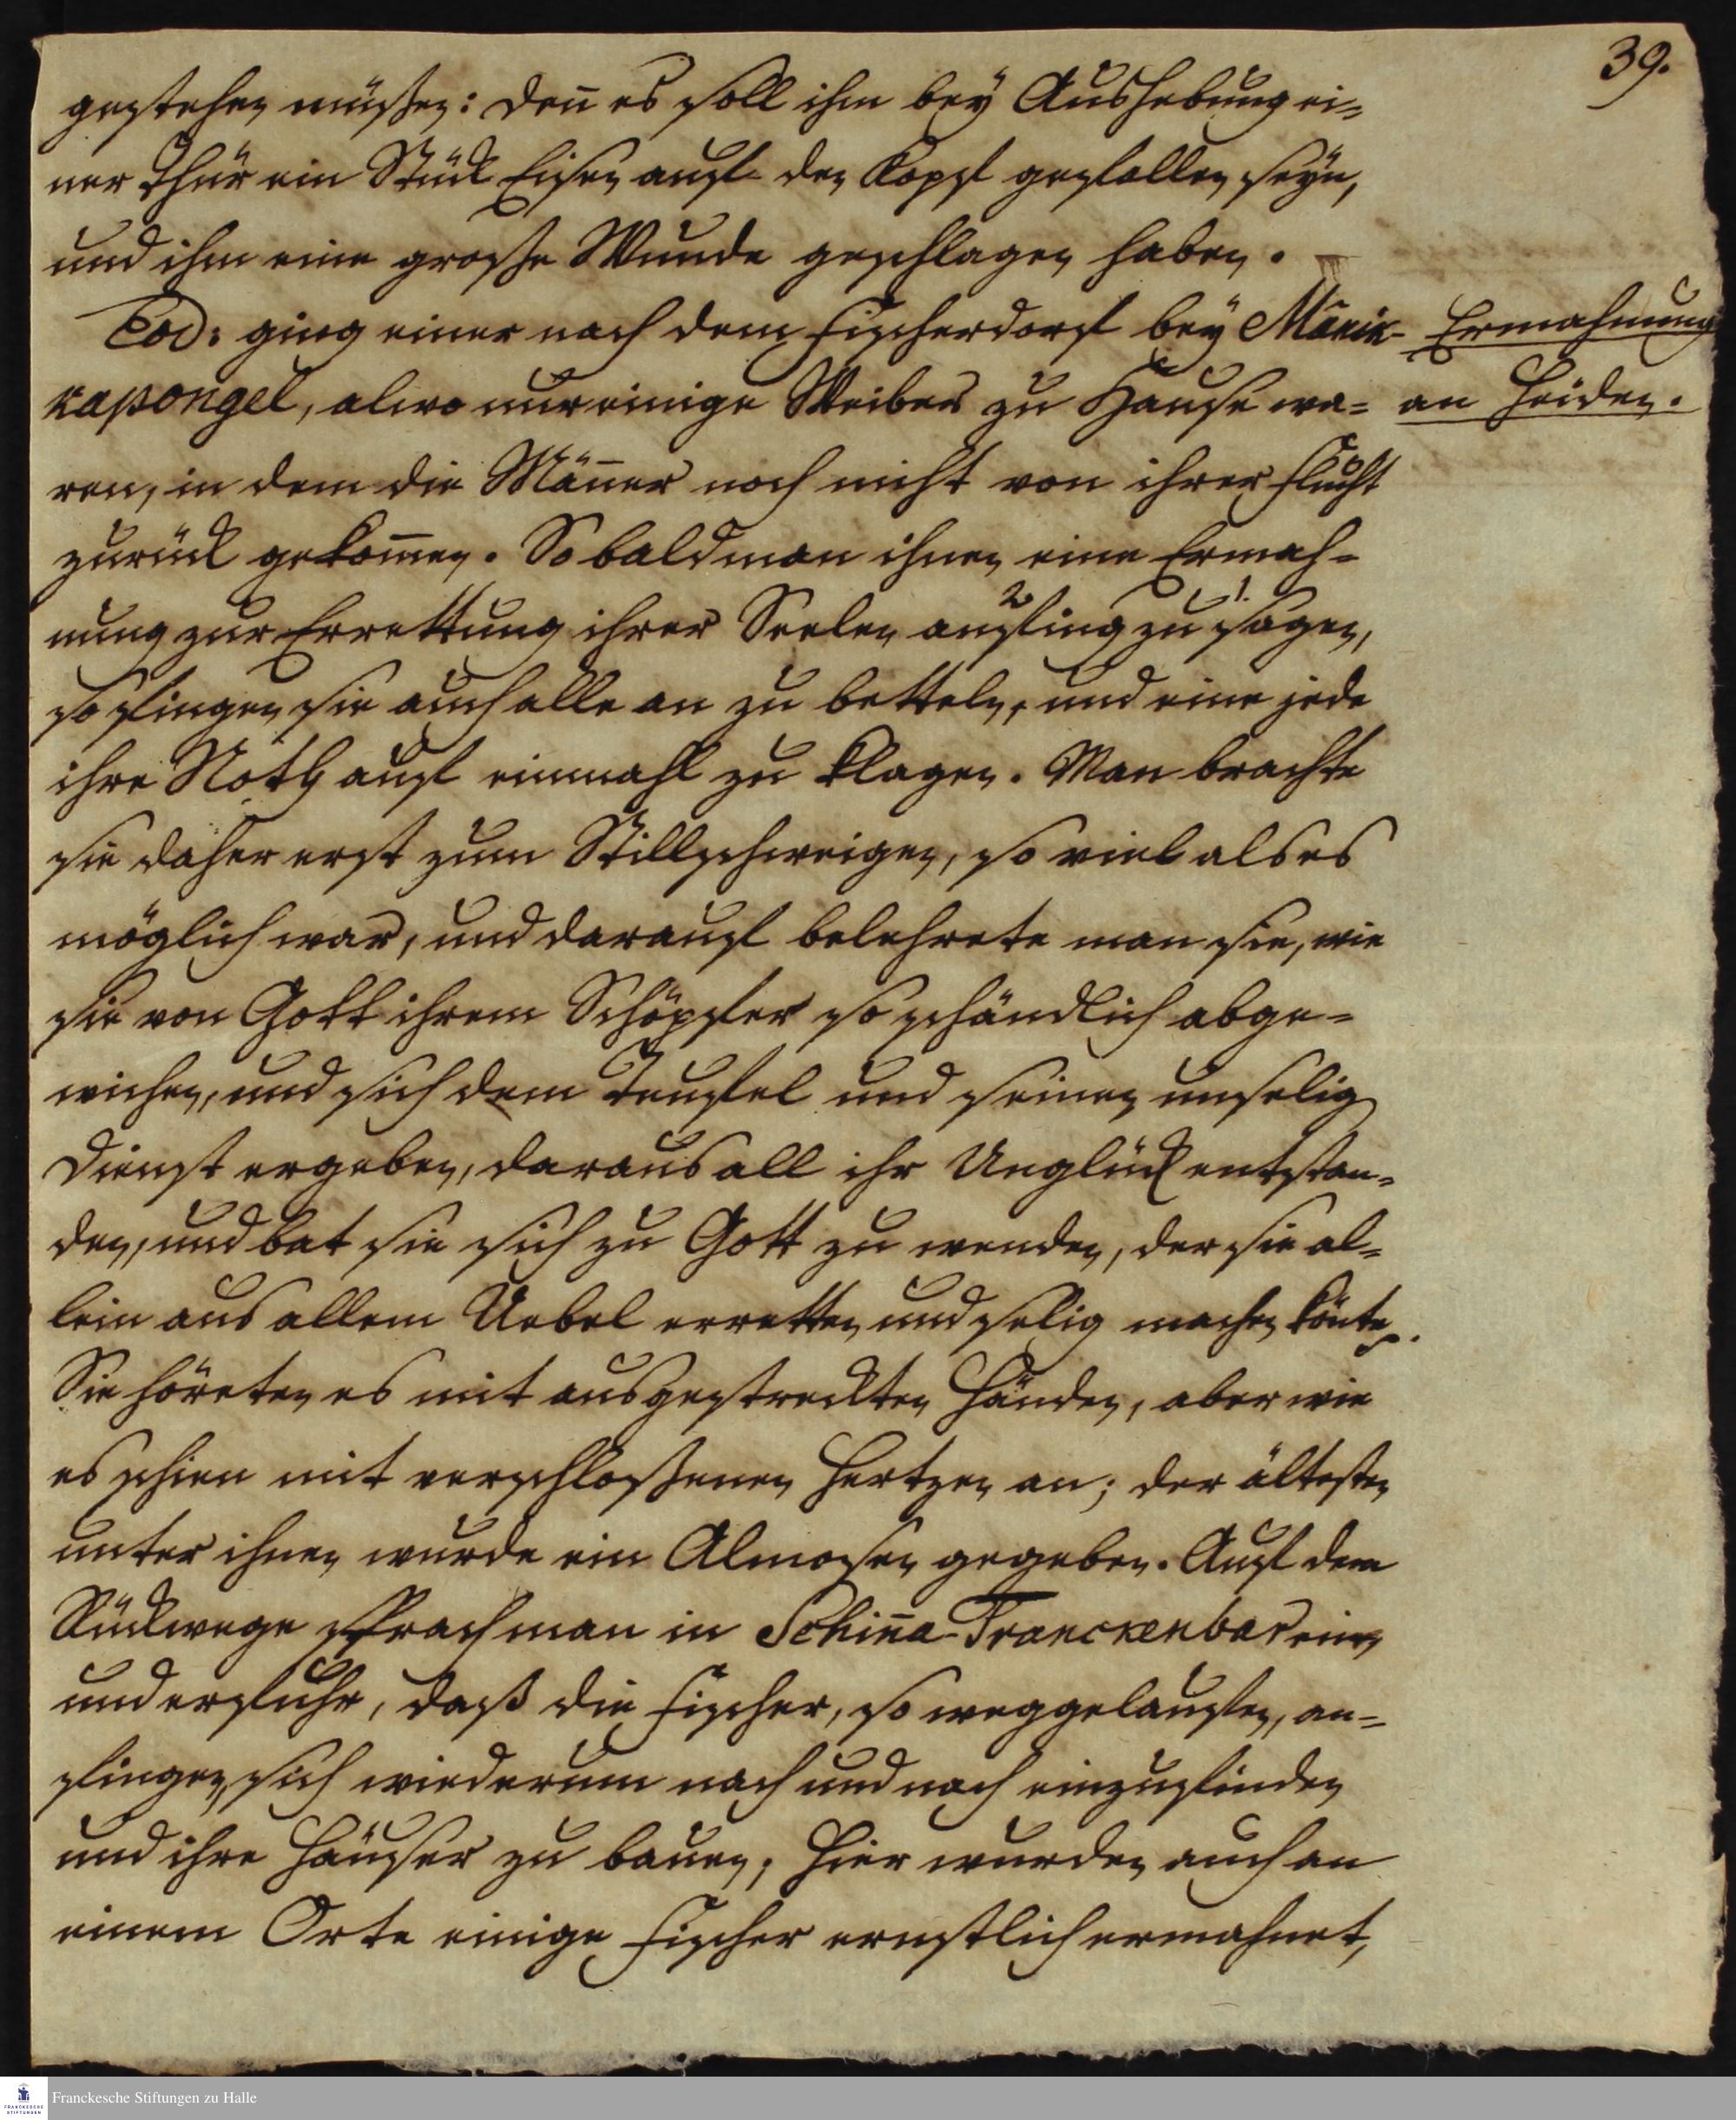 39.
gestehen müßen: denn es soll ihm bey Aushebung ei-
ner Thür ein Stück Eisen auf den Kopf gefallen seyn,
und ihm eine große Wunde geschlagen haben.
Eod: ging einer nach dem Fischerdorf bey Mánik-
kapongel, alwo nur einige Weiber zu Hause wa-
ren, in dem die Mañer noch nicht von ihrer Flucht
zurück gekom̄en. So bald man ihnen eine Ermah-
nung zur Errettung ihrer Seelen 2. anfing zu 1. sagen,
so fingen sie auch alle an zu betteln, und eine jede
ihre Noth auf einmahl zu klagen. Man brachte
sie daher erst zum Stillschweigen, so viel als es
möglich war, und darauf belehrete man sie, wie
sie von Gott ihrem Schöpfer so schändlich abge-
wichen, und sich dem Teufel und seinen unselig
Dienst ergeben, daraus all ihr Unglück entstan-
den, und bat sie sich zu Gott zu wenden, der sie al-
lein aus allem Uebel erretten und selig machen könte.
Sie höreten es mit ausgestreckten Händen, aber wie
es schien mit verschloßenen Hertzen an; der ältesten
unter ihnen wurde ein Almosen gegeben. Auf dem
Rückwege sprach man in Schiña-Tranckenbar ein,
und erfuhr, daß die Fischer, so weggelaufen, an-
fingen, sich wiederum nach und nach einzufinden
und ihre Häuser zu bauen; hier wurden auch an
einem Orte einige Fischer ernstlich ermahnet,
Ermahnung
an Heiden.
Franckesche Stiftungen zu Halle
FRANCKESCHE
STIFTUNGEN